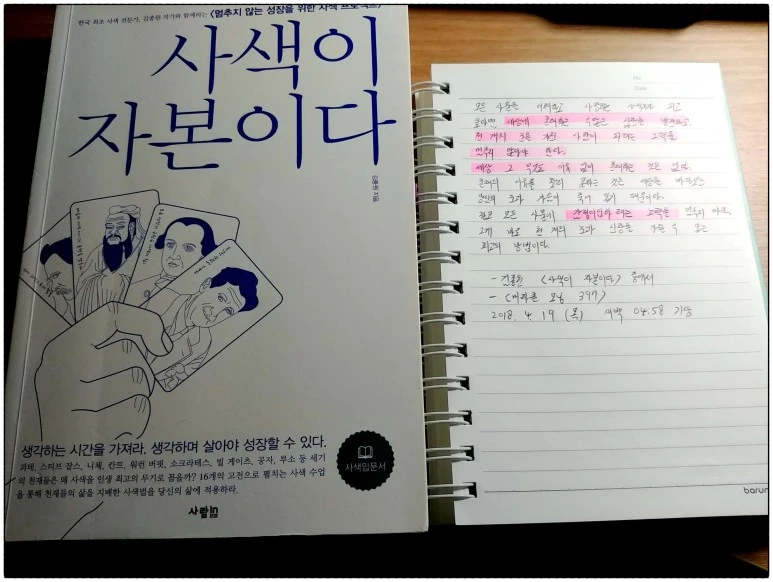 한국 최초 사색 전문가, 김종원 작가와 함께하는 〈멈추지 않는 성장을 위한 사색 프로젝트〉
사색이
자본이다
김종원 지음
생각하는 시간을 가져라. 생각하며 살아야 성장할 수 있다.
괴테, 스티브 잡스, 니체, 칸트, 워런 버핏, 소크라테스, 빌 게이츠, 공자, 루소 등 세기
의 천재들은 왜 사색을 인생 최고의 무기로 꼽을까? 16개의 고전으로 펼치는 사색 수업
을 통해 천재들의 삶을 지배한 사색법을 당신의 삶에 적용하라.
사색입문서
사람in
No
Date
모든 사물을 사랑하는 되고
싶다면 세상에 존재하는 수많은 발견하고,
천 개의 눈을 가진 시인이 되려는 노력을
멈추지 말아야 한다.
세상 그 무엇도 이유 없이 존재하는 것은 없다.
존재의 이유를 찾지 못하는 것은 세상을 바라보는
당신의 때문이다.
모든 사물에 노력을 멈추지 마라.
그게 바로 천 개의 눈과 가질 수 있는
최고의 방법이다.
- 김종원 <사색이 자본이다> 중에서
- <미라클 모닝 397>
2018. 4. 19 (목) 새벽 04:58 기상
barun